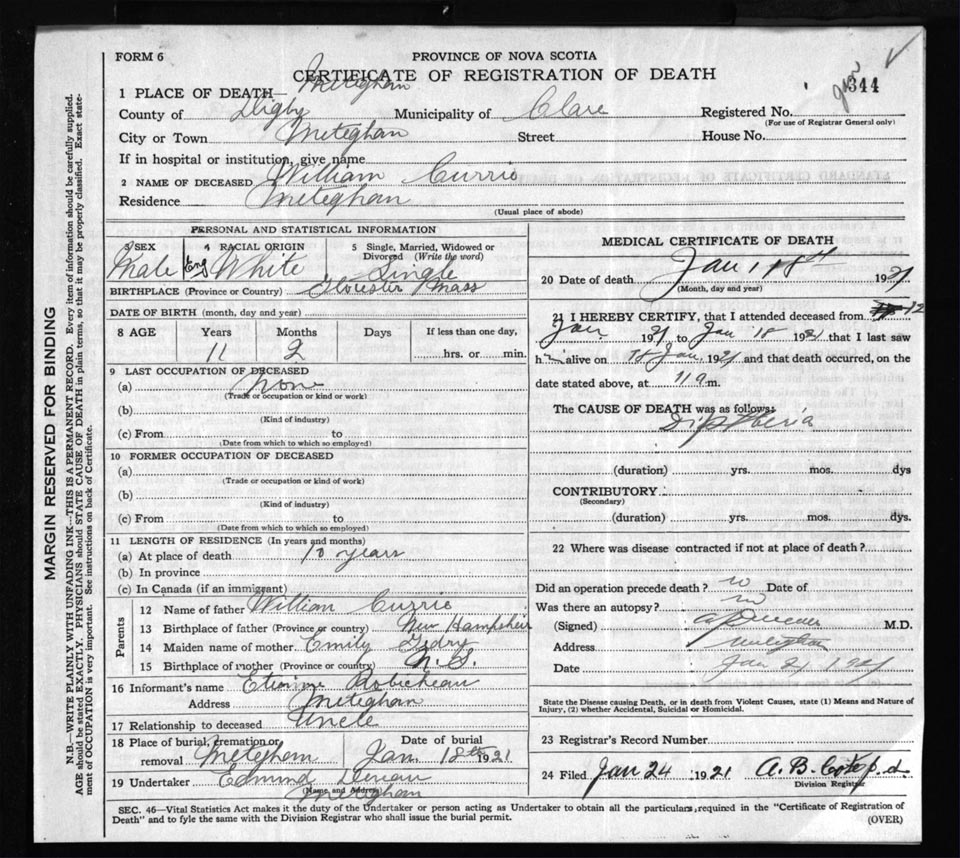 FORM 6
PROVINCE OF NOVA SCOTIA
CERTIFICATE OF REGISTRATION OF DEATH
344
1 PLACE OF DEATH— Meteghan
County of Digby Municipality of Clare Registered No.
(For use of Registrar General only)
City or Town Meteghan Street House No.
If in hospital or institution, give name
2 NAME OF DECEASED William Currie
Residence Meteghan
(Usual place of abode)
PERSONAL AND STATISTICAL INFORMATION
3 SEX Male
4 RACIAL ORIGIN Eng White
5 Single, Married, Widowed or Divorced (Write the word) Single
BIRTHPLACE (Province or Country) Gloucester Mass
DATE OF BIRTH (month, day and year)
8 AGE Years Months Days If less than one day,
11 2 hrs. or min.
9 LAST OCCUPATION OF DECEASED
(a) None
(Trade or occupation or kind of work)
(b)
(Kind of industry)
(c) From to
(Date from which to which so employed)
10 FORMER OCCUPATION OF DECEASED
(a)
(Trade or occupation or kind of work)
(b)
(Kind of industry)
(c) From to
(Date from which to which so employed)
11 LENGTH OF RESIDENCE (In years and months)
(a) At place of death 10 years
(b) In province
(c) In Canada (if an immigrant)
Parents
12 Name of father William Currie
13 Birthplace of father (Province or country) New Hampshire
14 Maiden name of mother Emily
15 Birthplace of mother (Province or country) N.S.
16 Informant's name Etienne Robicheau
Address Meteghan
17 Relationship to deceased Uncle
18 Place of burial, cremation or removal Meteghan Date of burial Jan 18th 1921
19 Undertaker Edmund
(Name and Address) Meteghan
MEDICAL CERTIFICATE OF DEATH
20 Date of death Jan, 18th 1921
(Month, day and year)
21 I HEREBY CERTIFY, that I attended deceased from 12
Jan 1921 to Jan 18 1921 that I last saw
h alive on 18 Jan, 1921 and that death occurred, on the
date stated above, at 11 a m.
The CAUSE OF DEATH was as follows:
Diptheria
(duration) yrs. mos. dys
CONTRIBUTORY
(Secondary)
(duration) yrs. mos. dys.
22 Where was disease contracted if not at place of death?
Did an operation precede death? no Date of
Was there an autopsy? no
(Signed) M.D.
Address Meteghan
Date Jan 21 1921
State the Disease causing Death, or in death from Violent Causes, state (1) Means and Nature of
Injury, (2) whether Accidental, Suicidal or Homicidal.
23 Registrar's Record Number
24 Filed Jan 24 1921 A. B.
Division Registrar
SEC. 46—Vital Statistics Act makes it the duty of the Undertaker or person acting as Undertaker to obtain all the particulars, required in the "Certificate of Registration of
Death" and to fyle the same with the Division Registrar who shall issue the burial permit. (OVER)
MARGIN RESERVED FOR BINDING
N.B.—WRITE PLAINLY WITH UNFADING INK—THIS IS A PERMANENT RECORD. Every item of information should be carefully supplied.
AGE should be stated EXACTLY. PHYSICIANS should STATE CAUSE OF DEATH in plain terms, so that it may be properly classified. Exact state-
ment of OCCUPATION is very important. See instructions on back of Certificate.